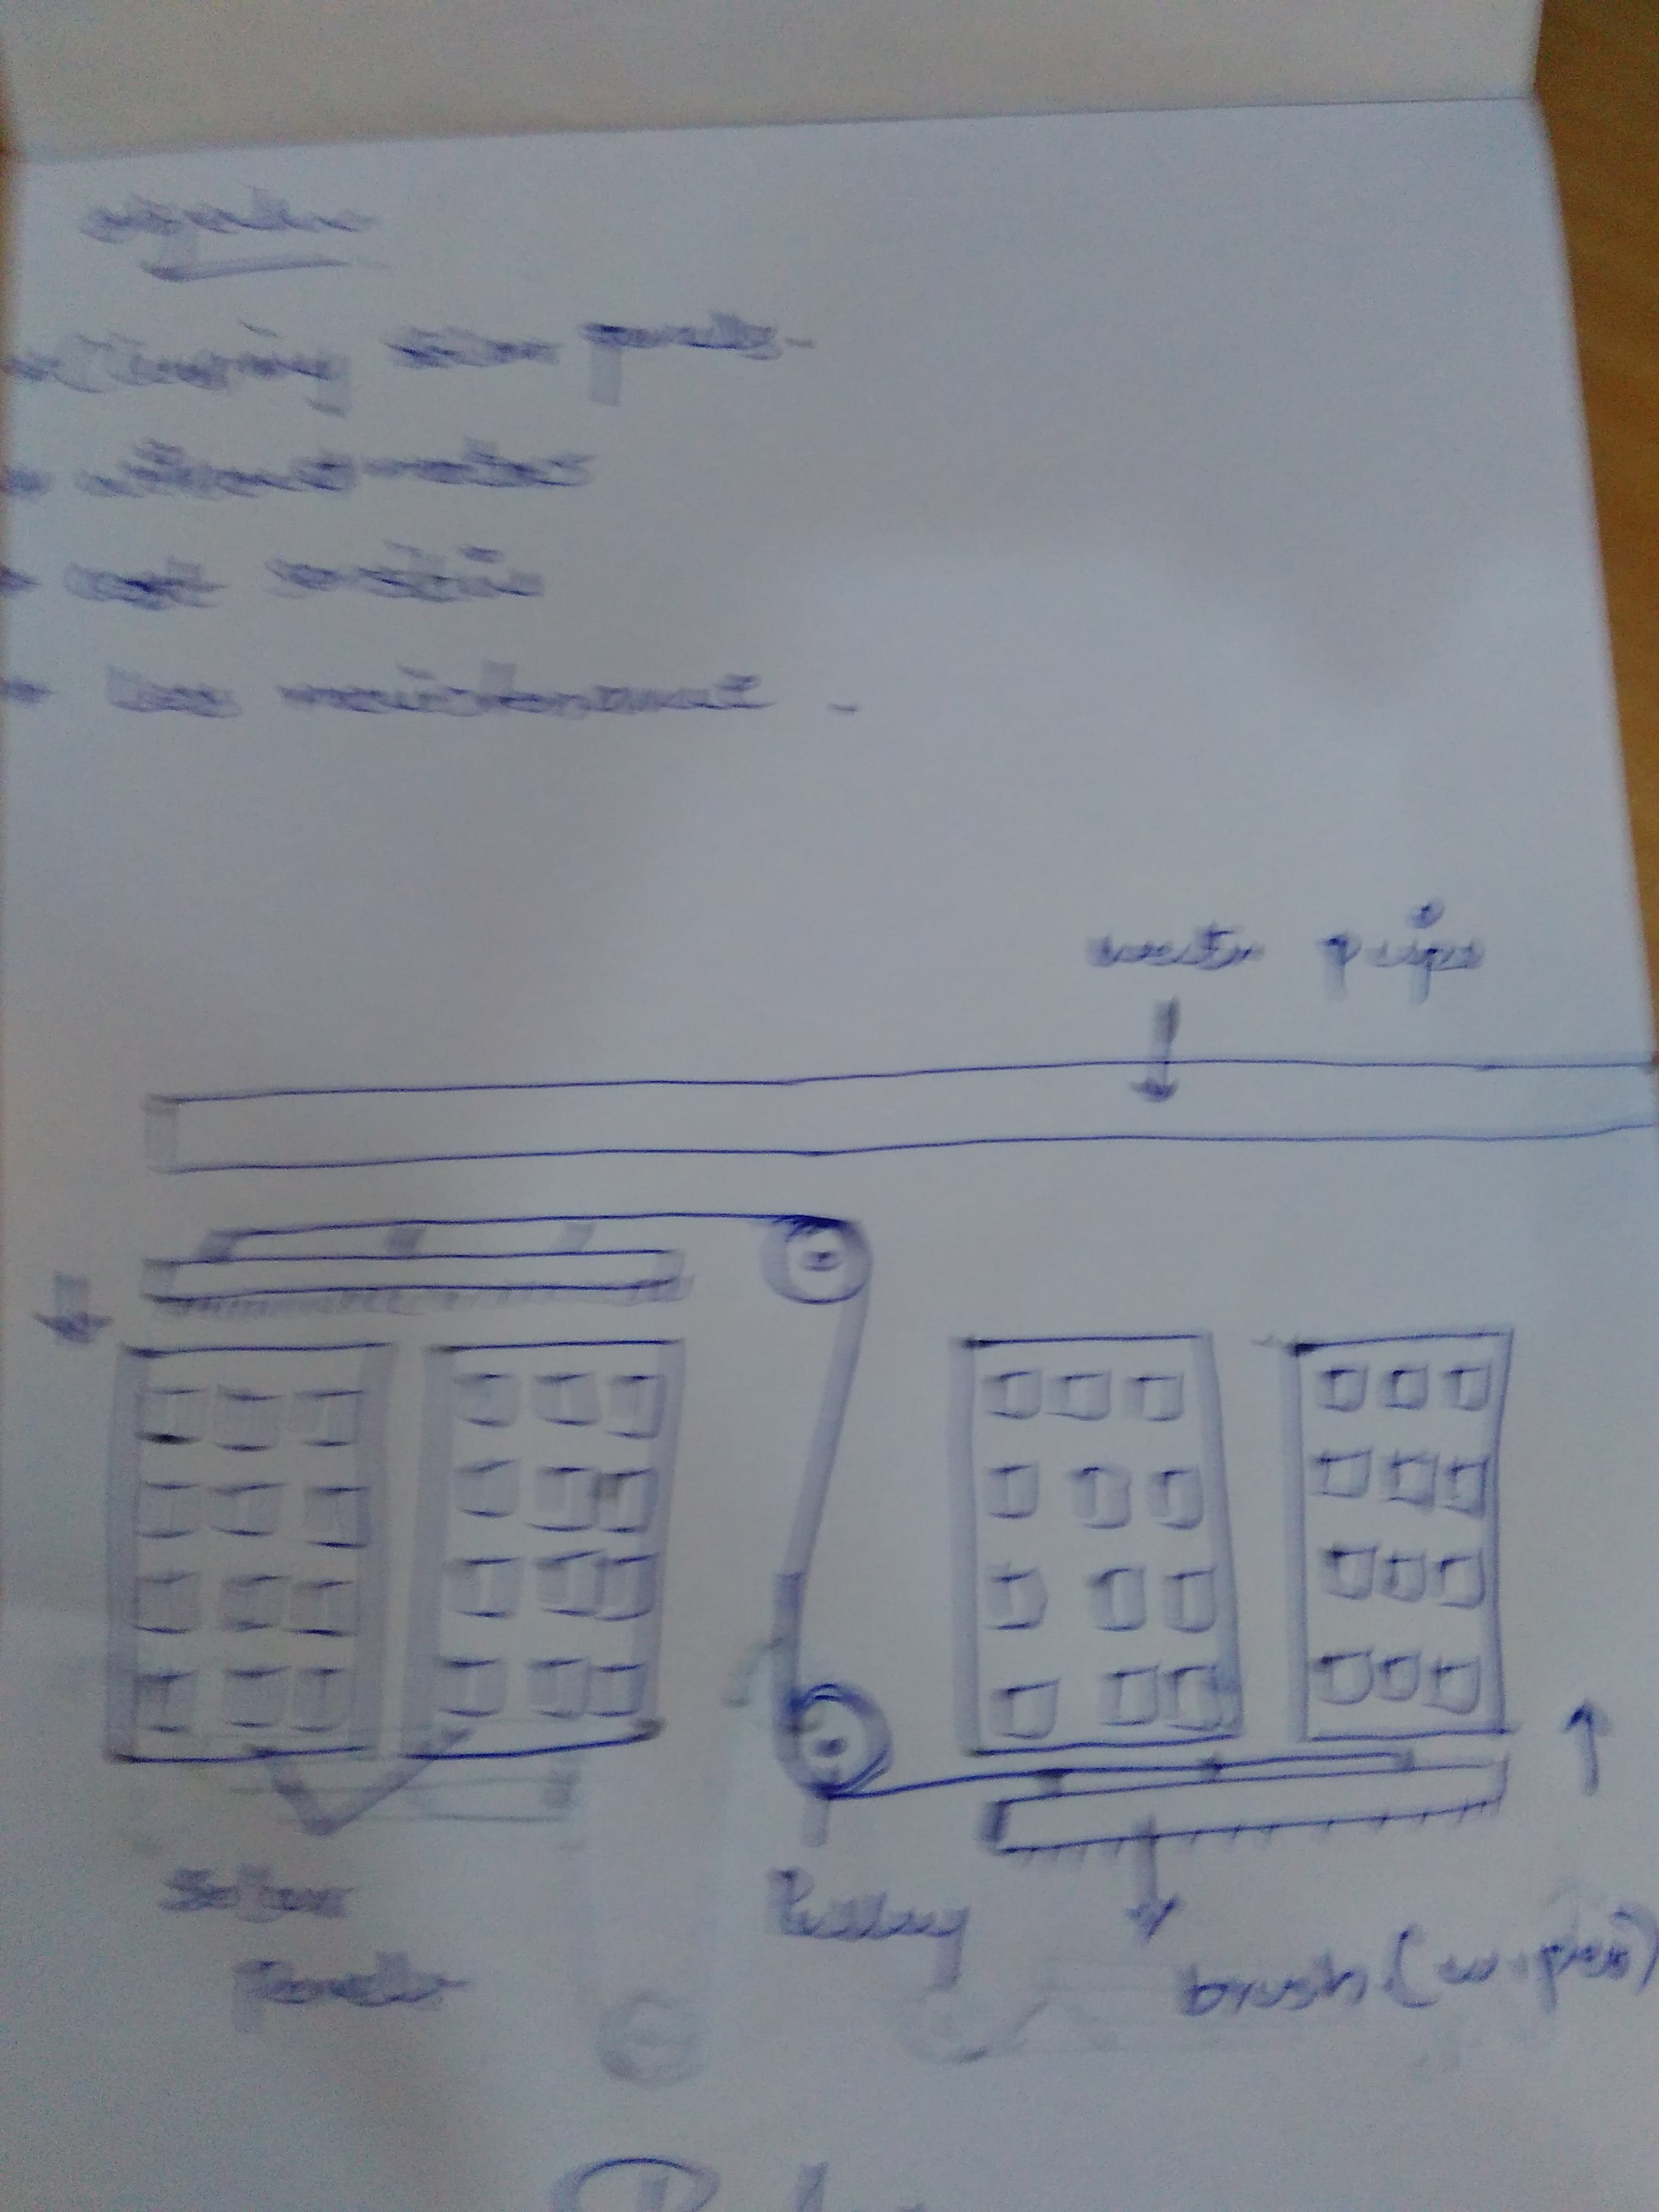 cleaning solar panels.
without water
cost
less maintenance.
water pipe
Solar
Panels
Pulley
brush (wiper)